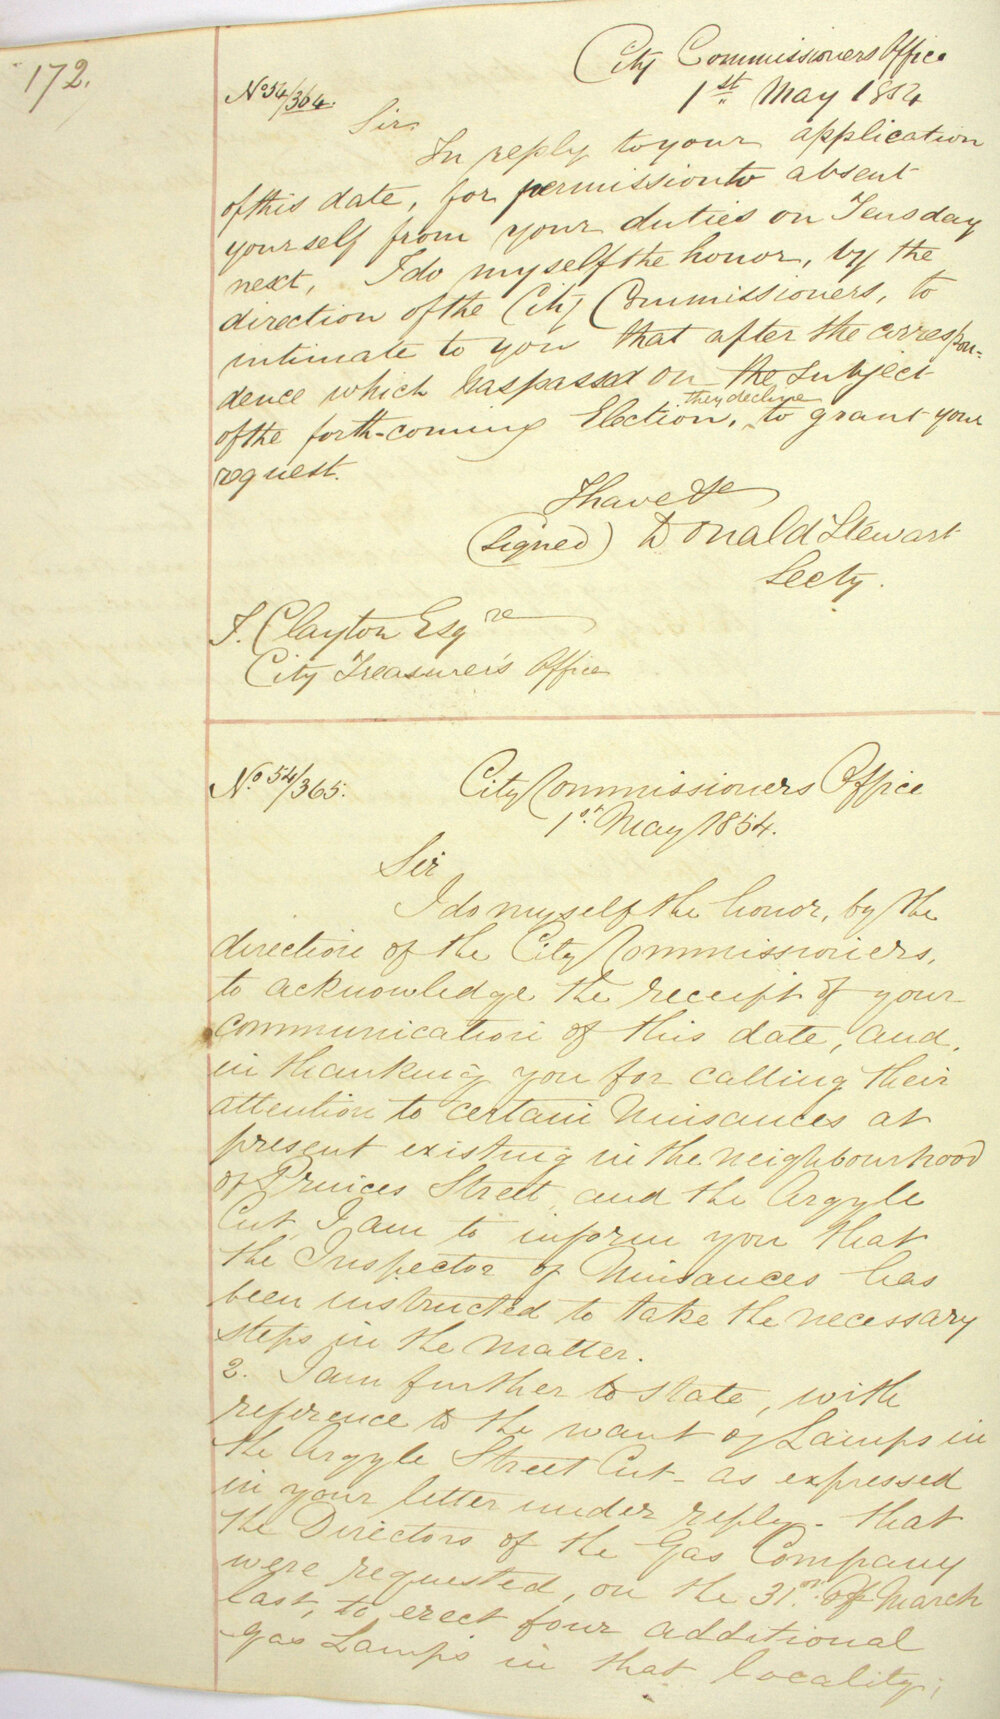 172.
City Commissioners Office
No 54/364. 1st May 1854
Sir
In reply to your application
of this date, for permission to absent
yourself from your duties on Teusday
next, I do myself the honor, by the
direction of the City Commissioners, to
intimate to you that after the correspon-
dence which has passed on the subject
they decline
of the forth-coming Election, to grant your
request.
I have &c
(Signed) Donald Stewart
Secty.
Clayton Esqre
City Treasurer's Office
No 54/365. City Commissioners Office
1st May 1854.
Sir
I do myself the honor, by the
direction of the City Commissioners,
to acknowledge the receipt of your
communication of this date, and,
in thanking you for calling their
attention to certain Nuisances at
present existing in the neighbourhood
of Princes Street, and the Argyle
Cut, I am to inform you that
the Inspector of Nuisances has
been instructed to take the necessary
steps in the matter.
2. I am further to state, with
reference to the want of Lamps in
the Argyle Street Cut - as expressed
in your letter under reply - that
the Directors of the Gas Company
were requested, on the 31st of March
last, to erect four additional
gas Lamps in that locality;